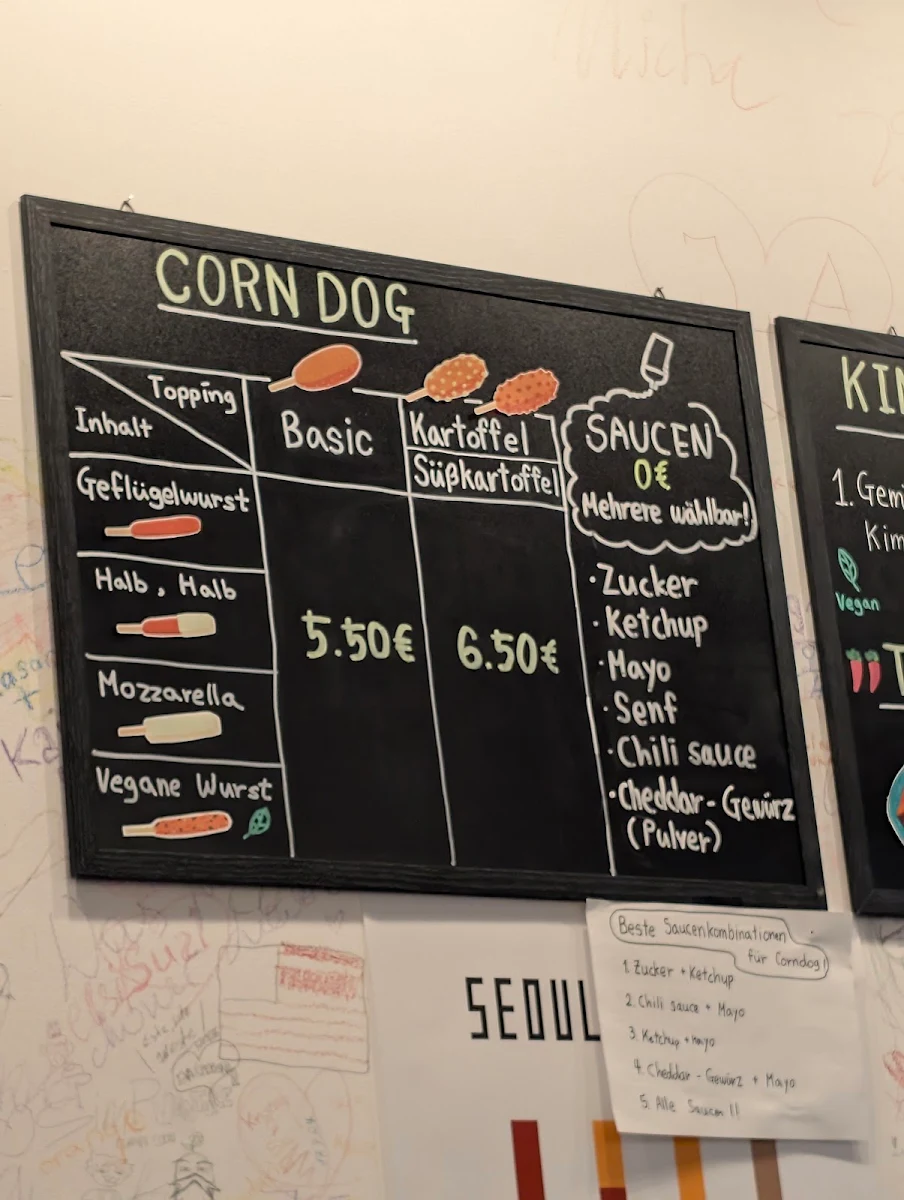 Micha
J A
CORN DOG
Topping
Inhalt
Basic
Kartoffel
Süßkartoffel
Geflügelwurst
Halb, Halb
Mozzarella
Vegane Wurst
5.50€
6.50€
SAUCEN
0€
Mehrere wählbar!
·Zucker
·Ketchup
·Mayo
·Senf
·Chili sauce
·Cheddar-Gewürz
(Pulver)
1.
Vegan
Beste Saucenkombinationen
für Corndog!
1. Zucker + Ketchup
2. Chili sauce + Mayo
3. Ketchup + Mayo
4. Cheddar - Gewürz + Mayo
5. Alle Saucen !!
SEOUL